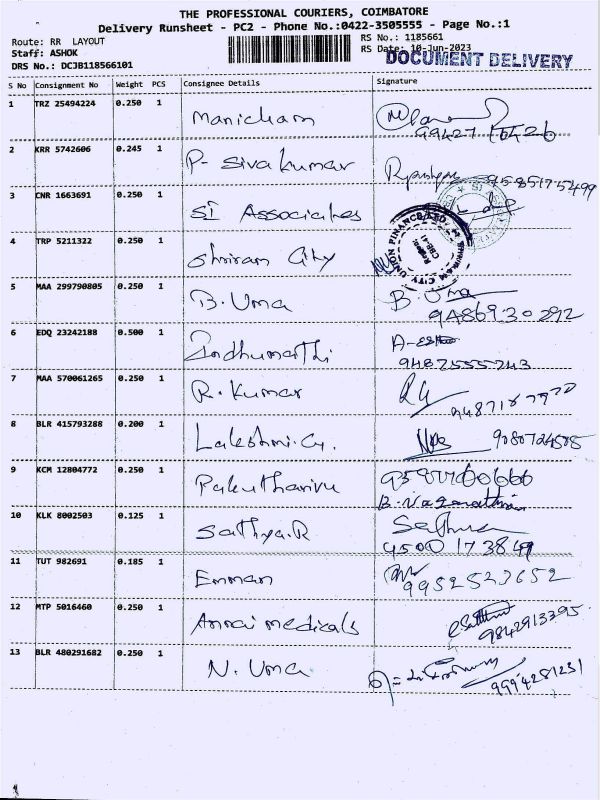 THE PROFESSIONAL COURIERS, COIMBATORE
Delivery Runsheet - PC2 - Phone No.:0422-3505555 - Page No.:1
Route: RR LAYOUT
RS No.: 1185661
Staff: ASHOK
RS Date: 10-Jun-2023
DOCUMENT DELIVERY
DRS No.: DCJB118566101
S No Consignment No Weight PCS Consignee Details Signature
1 TRZ 25494224 0.250 1 Manicham
2 KRR 5742606 0.245 1 P- Sivakumar
3 CNR 1663691 0.250 1 SI Associates
4 TRP 5211322 0.250 1 Shriram City
SHRIRAM CITY UNION FINANCE LTD.
CBE-41
5 MAA 299790805 0.250 1 B. Uma B. Uma
9486930292
6 EDQ 23242188 0.500 1 Indhumathi
9487555743
7 MAA 570061265 0.250 1 R. Kumar
8 BLR 415793288 0.200 1 Lakshmi. G.
9 KCM 12804772 0.250 1
10 KLK 8002503 0.125 1 Sathya.R Sathya
9500173849
11 TUT 982691 0.185 1 Emman 9952523652
12 MTP 5016460 0.250 1 Annai medicals 9842913395
13 BLR 480291682 0.250 1 N. Uma 9994281231